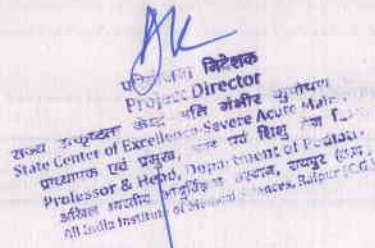 परियोजना निदेशक
Project Director
राज्य उत्कृष्टता केन्द्र अति गंभीर कुपोषण
State Center of Excellence-Severe Acute
प्राध्यापक एवं प्रमुख, एवं शिशु रोग
Professor & Head, Department of
अखिल भारतीय आयुर्विज्ञान संस्थान, रायपुर
All India Institute of Medical Sciences, Raipur (C.G.)